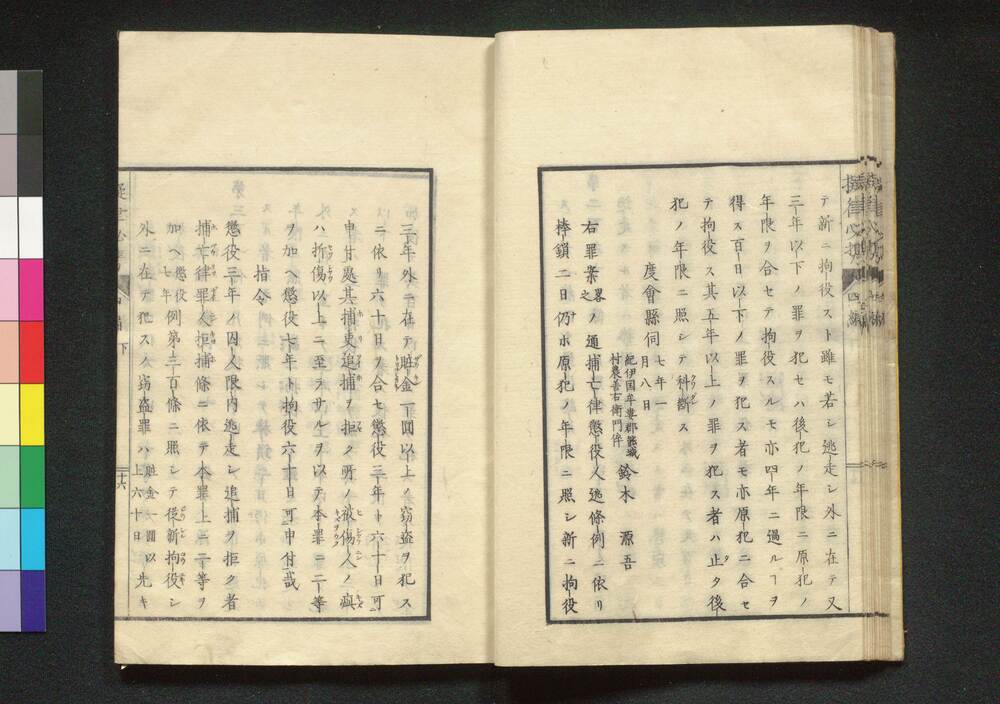 テ新ニ拘役スト雖モ若シ逃走シ外ニ在テ又
三年以下ノ罪ヲ犯セハ後犯ノ年限ニ原犯ノ
年限ヲ合セテ拘役スルモ亦四年ニ過ルヿヲ
得ス百日以下ノ罪ヲ犯ス者モ亦原犯ニ合セ
テ拘役ス其五年以上ノ罪ヲ犯ス者ハ止タ後
犯ノ年限ニ照シテ科断ス
度會縣伺
七年一
月八日
紀伊国牟婁郡
村
善右衛門倅
鈴木源吾
右罪案畧之ノ通捕亡律懲役人逃條例ニ依リ
棒鎖二日仍ホ原犯ノ年限ニ照シ新ニ拘役
三年外ニ在テ贓金一圓以上ノ窃盗ヲ犯ス
ニ依リ六十日ヲ合セ懲役三年ト六十日可
申付處其捕吏追捕ヲ拒ク時ノ被傷人ノ瘢
ハ折傷以上ニ至ラサルヲ以テ本罪ニ二等
ヲ加ヘ懲役七年ト拘役六十日可申付哉
指令
懲役三年ノ囚人限内逃走シ追捕ヲ拒ク者
捕亡律罪人拒捕條ニ依テ本罪上ニ二等ヲ
加ヘ懲役七年例第三百條ニ照シテ從新拘役シ
外ニ在テ犯ス窃盗罪ハ贓金一圓以上六十日先キ
十六